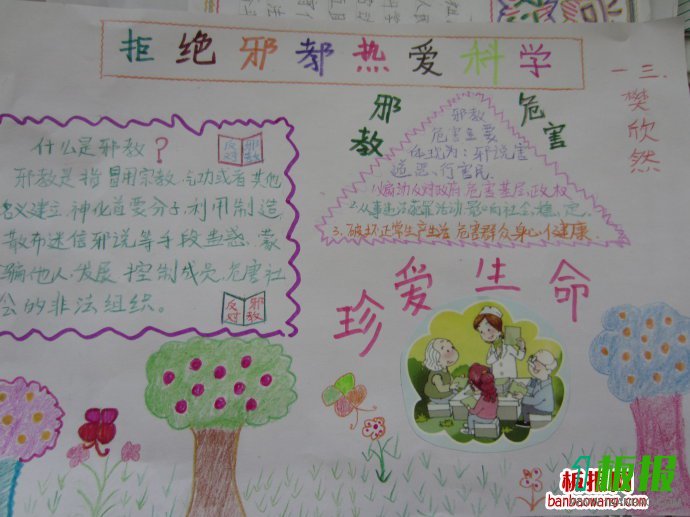 拒绝邪教热爱科学
一三.
樊欣然
什么是邪教？
反对
邪教
邪教是指冒用宗教、气功或者其他
名义建立、神化首要分子、利用制造、
散布迷信邪说等手段蛊惑、蒙
骗他人,发展、控制成员,危害社
会的非法组织。
反对
邪教
邪教
危害
邪教
危害主要
体现为：邪说害
道恶、行害民.
1.煽动反对政府,危害基层政权
2.从事违法犯罪活动,影响社会稳定.
3.破坏正常生产生活,危害群众身心健康.
珍爱生命
板报
banbaowang.com